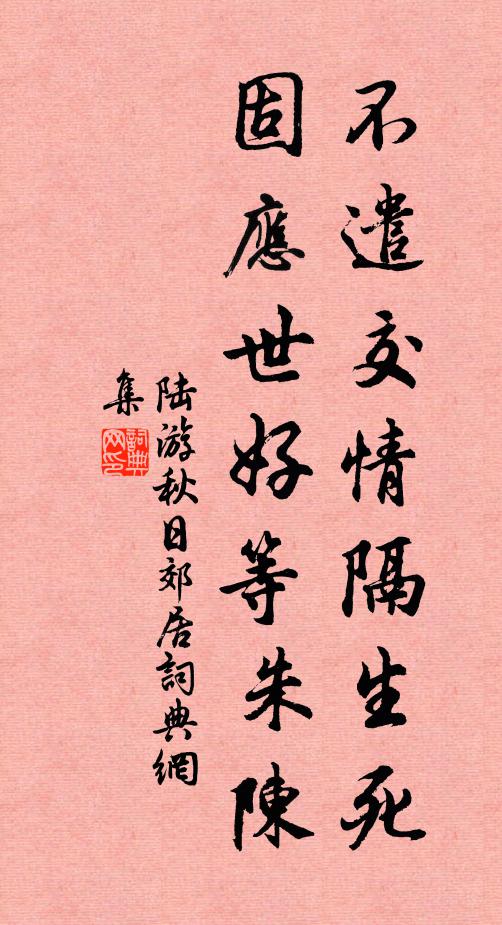 不遣交情隔生死
固應世好等朱陳
陆游秋日郊居詞典網
集
詞典网印